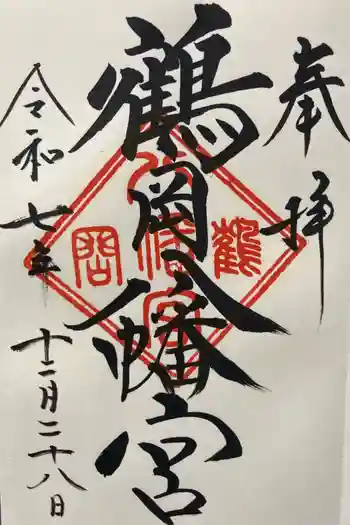 奉拝
鶴岡八幡宮
令和七年
十二月二十八日
鶴
八幡宮
岡